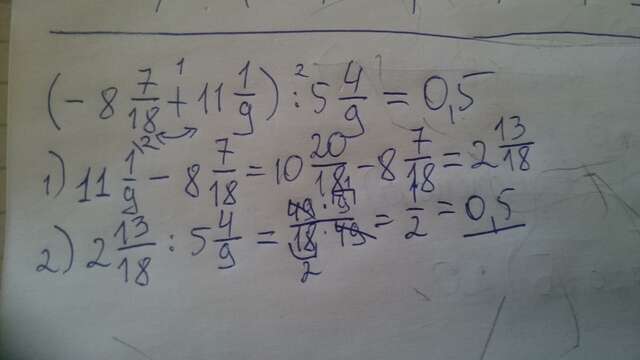 (-8 7/18 + 11 1/9) : 5 4/9 = 0,5
1) 11 1/9 - 8 7/18 = 10 20/18 - 8 7/18 = 2 13/18
2) 2 13/18 : 5 4/9 = 49 · 9/18 · 49 = 1/2 = 0,5